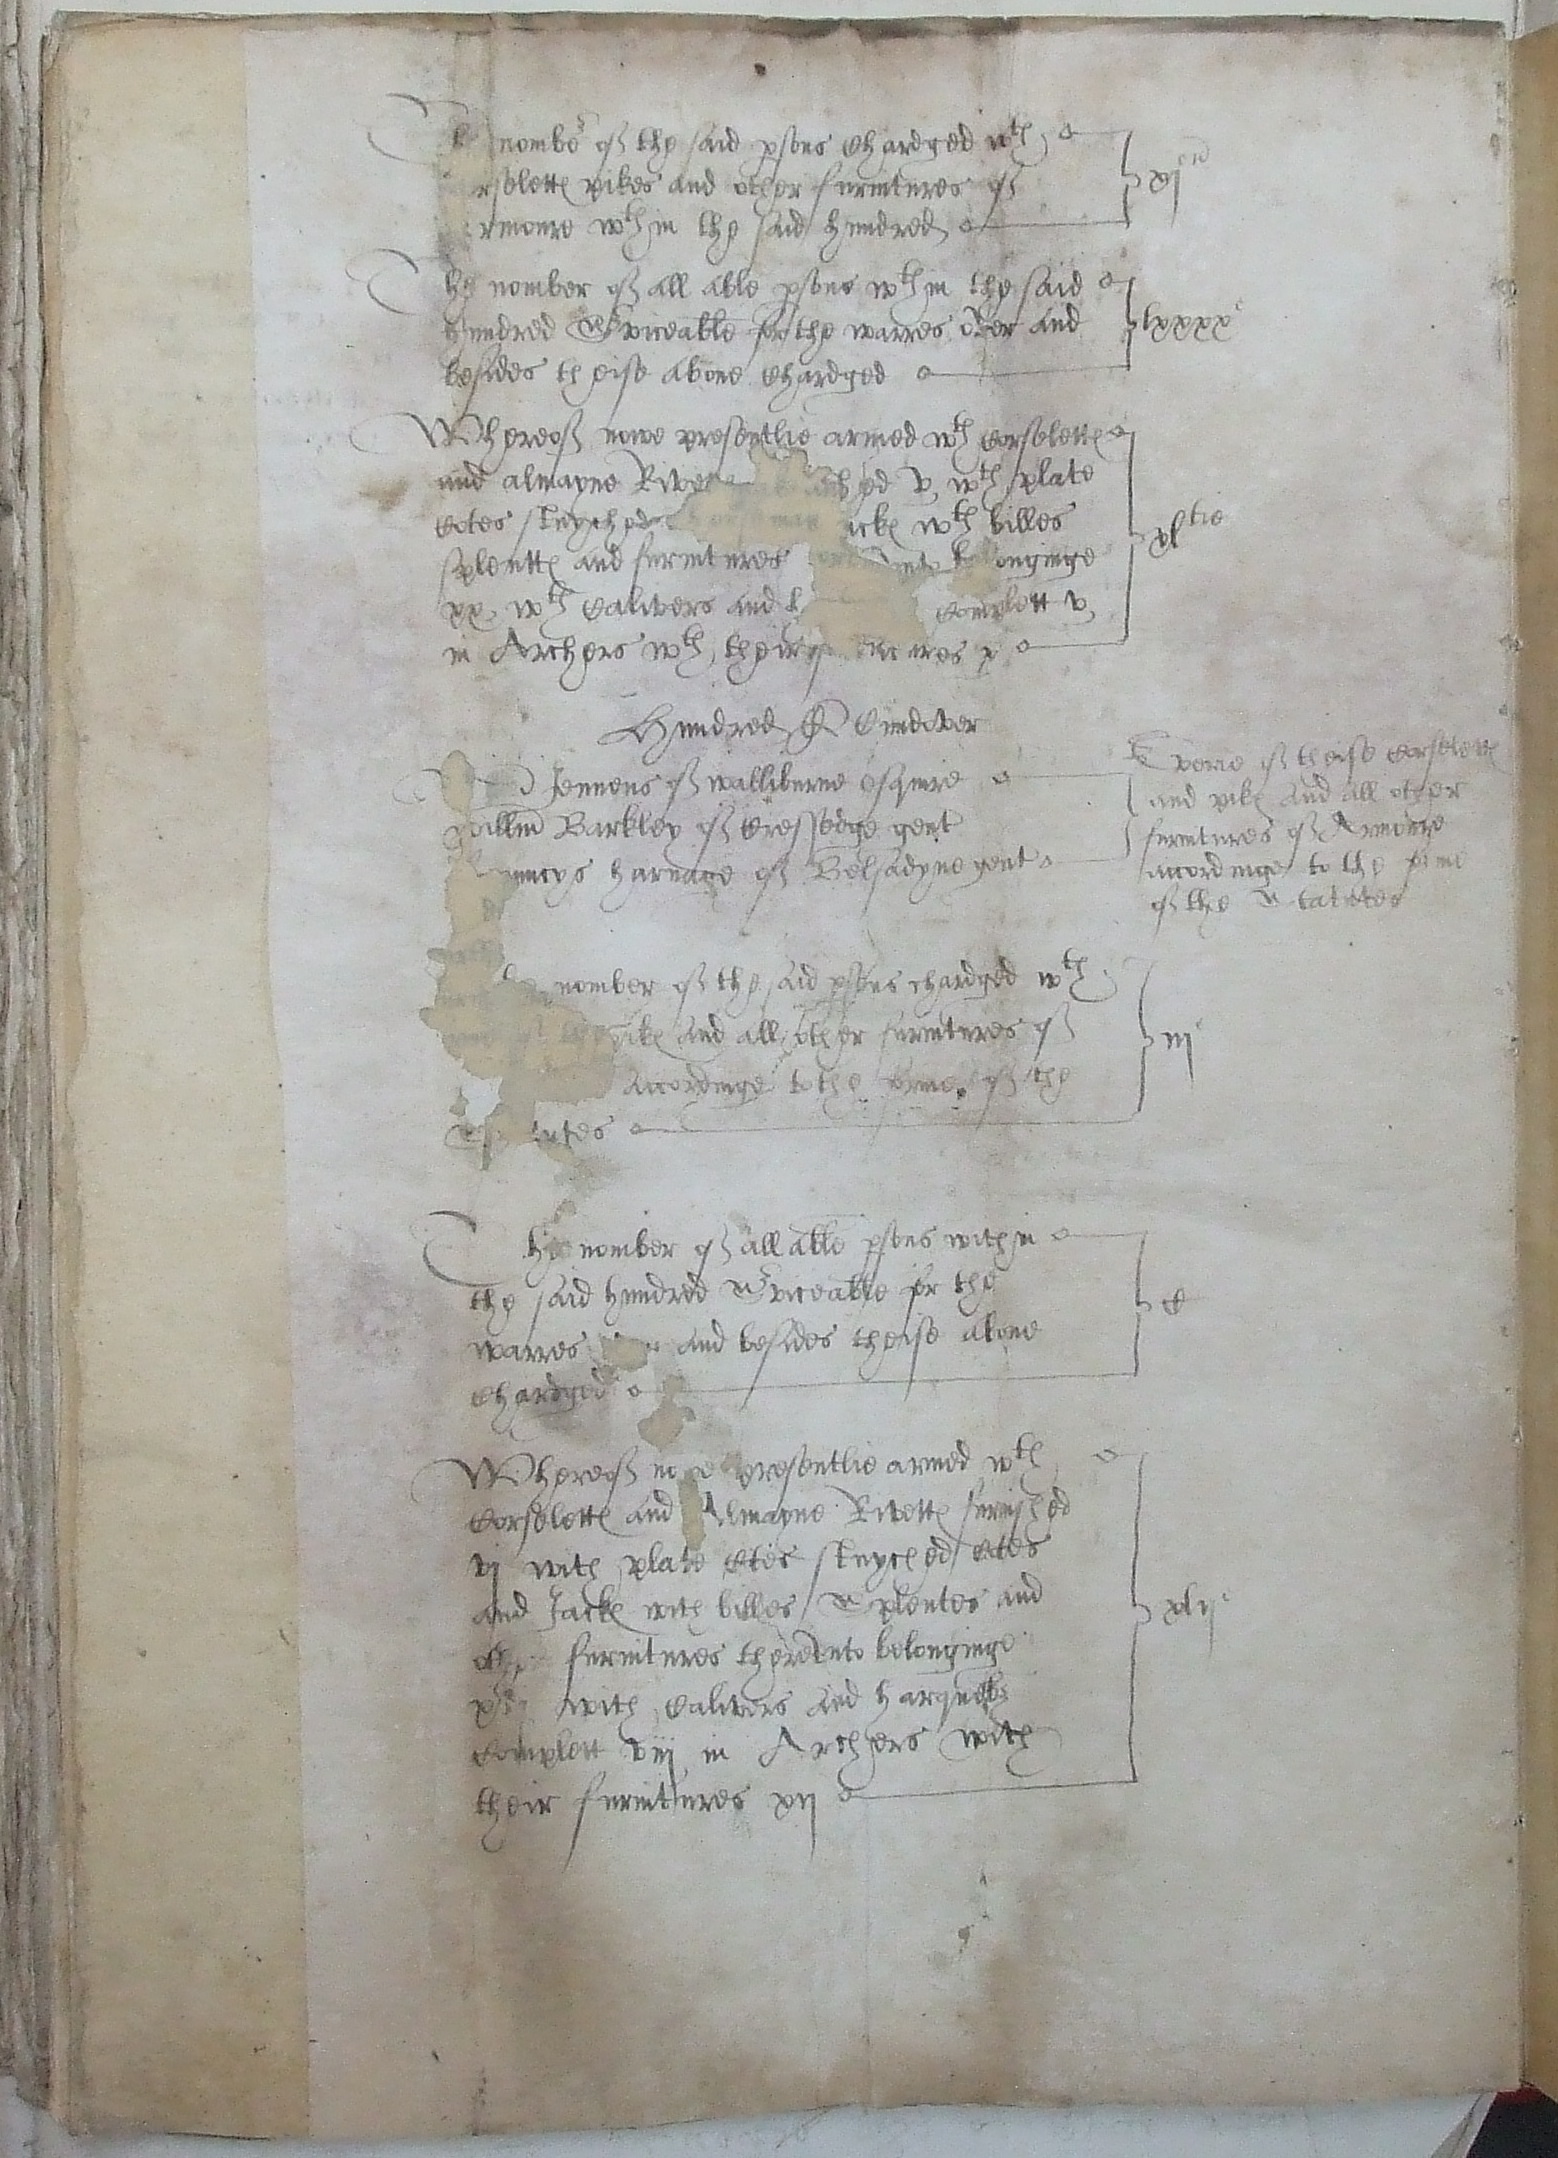 nombr of the said psons Chardged wth
rselett pikes and other furnitures of
rmoure wthin the said hundred
xj
The nomber of all able psons wthin the said
hundred Sviceable for the warres over and
besides theise above Chardged
lxxxx
Whereof nowe presentlie armed wth Corselett
and almayne Rive shed v, wth plate
Cotes stuyched ack wth billes
splentt and furnitures unto belonginge
xx, wth Calivers and complett v,
in Archers wth their x
xltie
Hundred De Cundover
Jennens of walliburne esquire
willm Barkley of Cressedge gent
harnage of Belsadyne gent
Everie of theise Corselett
and pike and all other
furnitures of Armoure
accordinge to the forme
of the Statutes
nomber of the said psons chardged wth
pike and all other furnitures of
accordinge to the forme of the
utes
iij
The nomber of all able psons within
the said hundred Sviceable for the
warres and besides theise above
Chardged
C
Whereof presentlie armed wth
Corselett and Almayne Rivett furnished
vj with plate Cotes stuyched Cotes
and Jack with billes Splentes and
furnitures thereunto belonginge
with Calivers and harquebs
Complett viij in Archers with
their furnitures xij
xlij